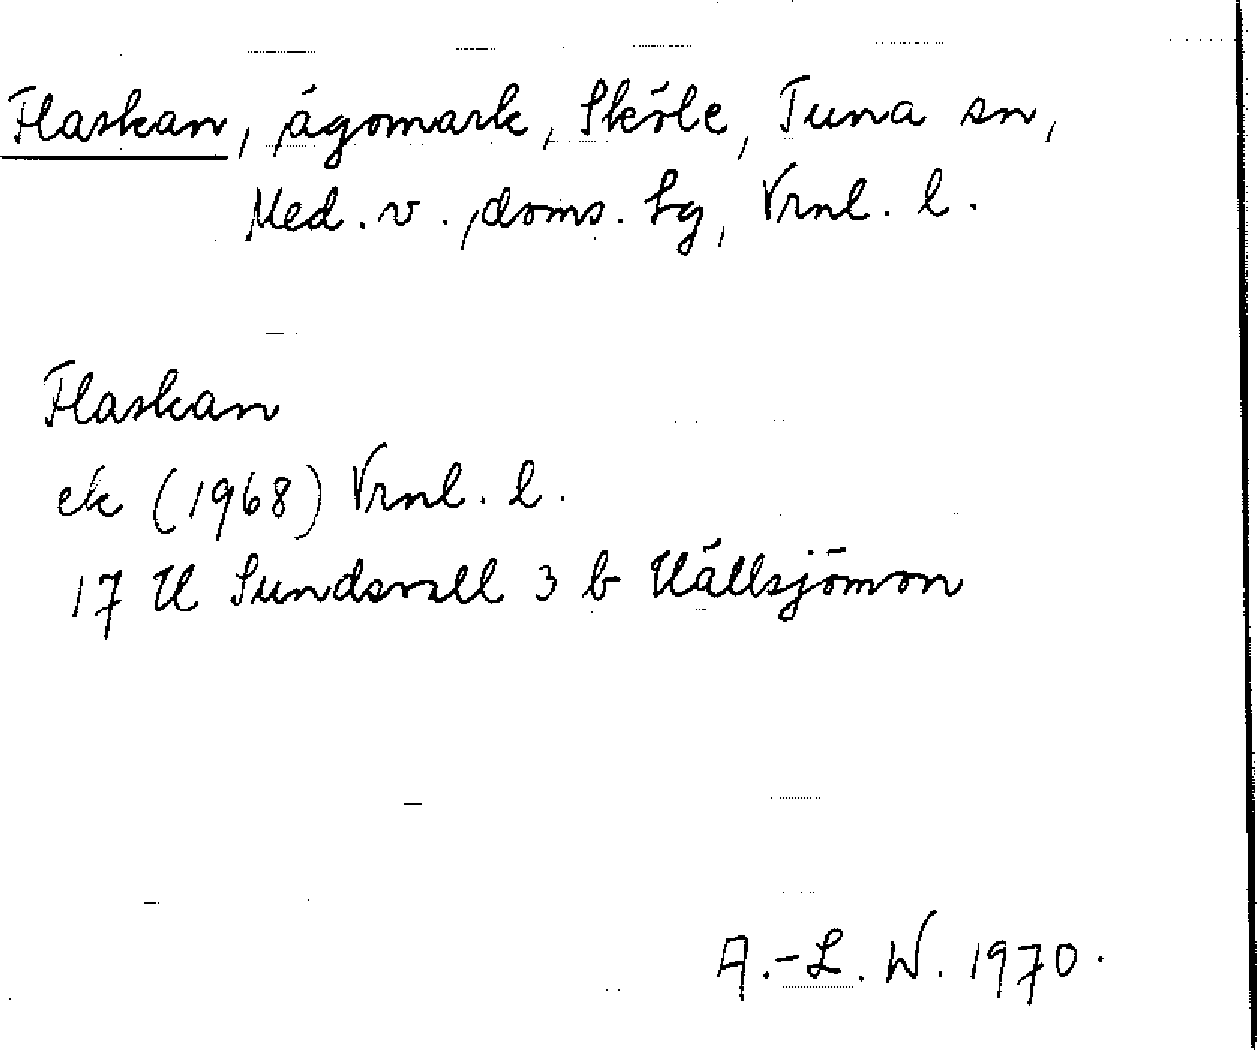 Flaskan, ägomark, Sköle, Tuna sn,
Med. v. doms. hg, Vrnl. l.
Flaskan
ek (1968) Vrnl. l.
17 H Sundsvall 3 b Hällsjömon
A.-L. W. 1970.